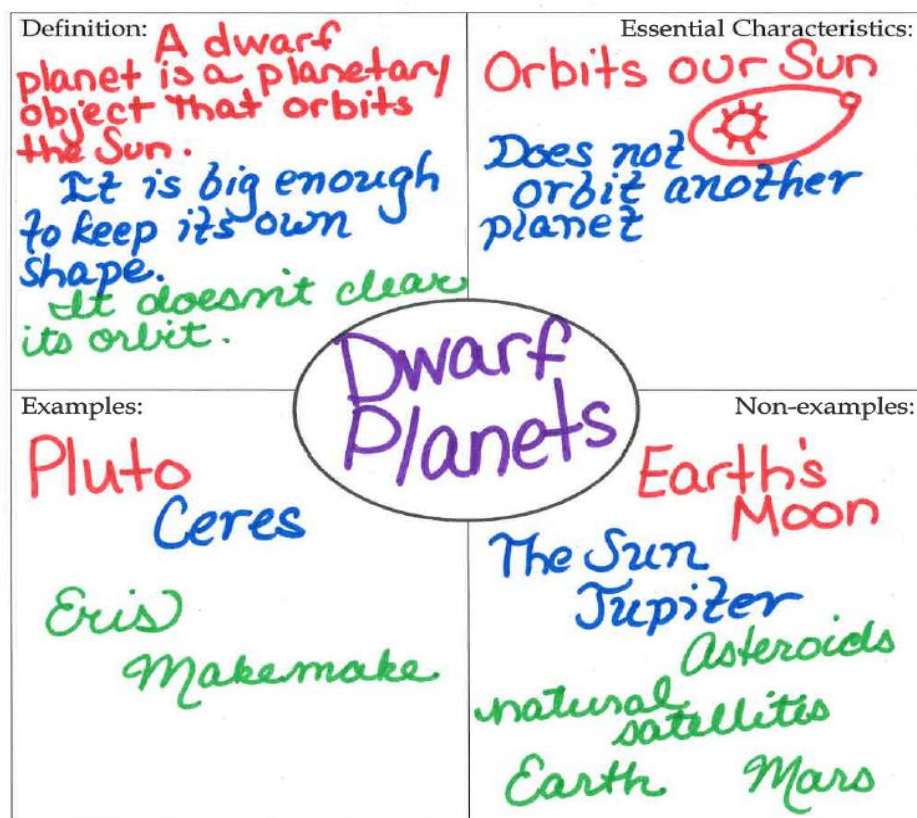 Definition: A dwarf
planet is a planetary
object that orbits
the Sun.
It is big enough
to keep its own
shape.
It doesn't clear
its orbit.
Essential Characteristics:
Orbits our Sun
Does not
orbit another
planet
Dwarf
Planets
Examples:
Pluto
Ceres
Eris
Makemake
Non-examples:
Earth's
Moon
The Sun
Jupiter
Asteroids
natural
satellites
Earth Mars